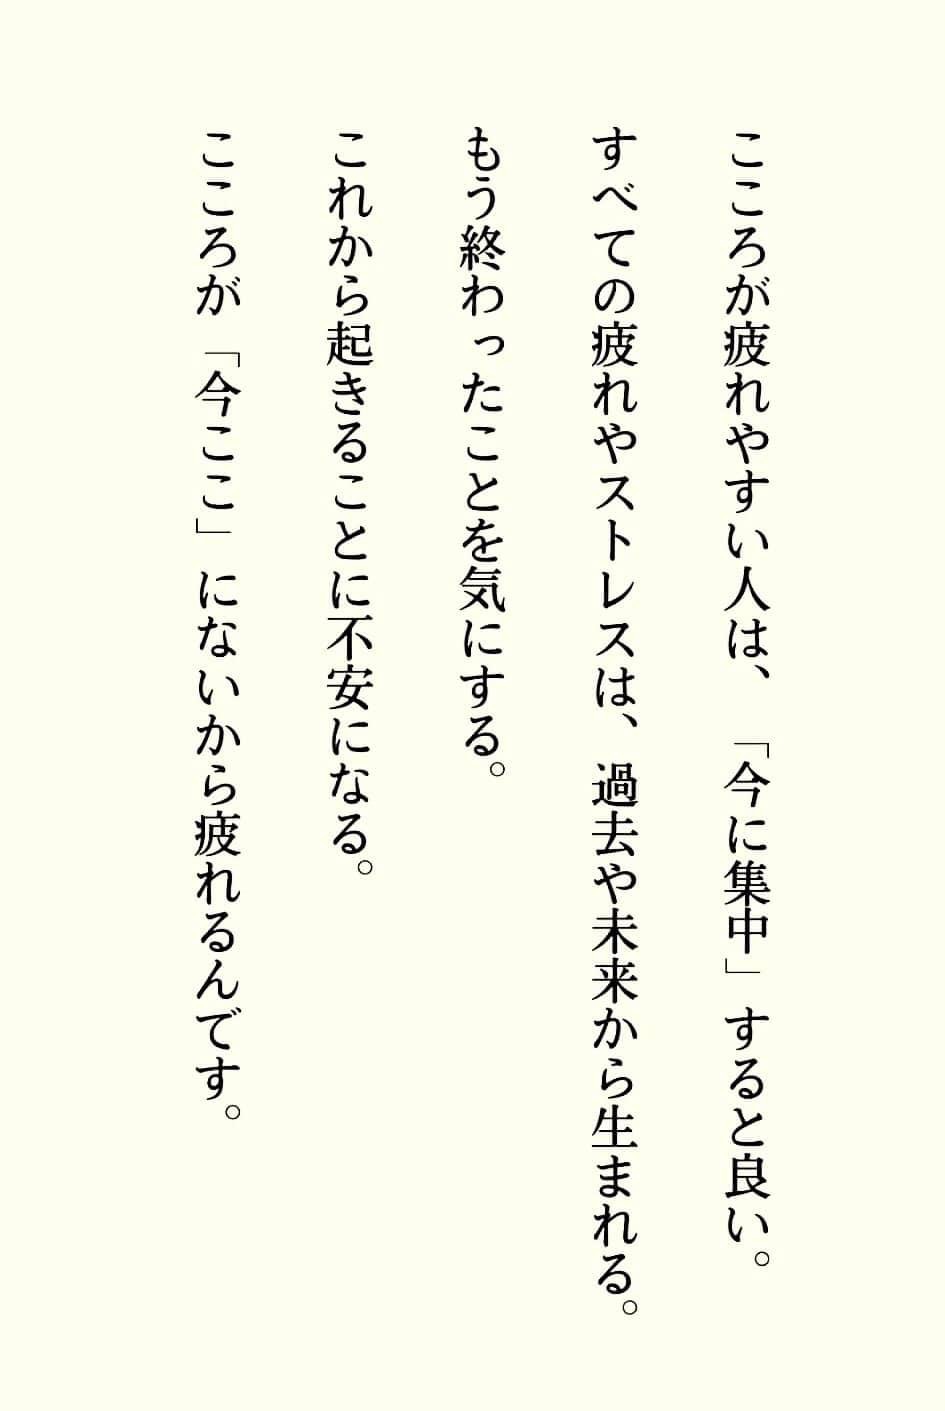 こころが疲れやすい人は、「今に集中」すると良い。
すべての疲れやストレスは、過去や未来から生まれる。
もう終わったことを気にする。
これから起きることに不安になる。
こころが「今ここ」にないから疲れるんです。